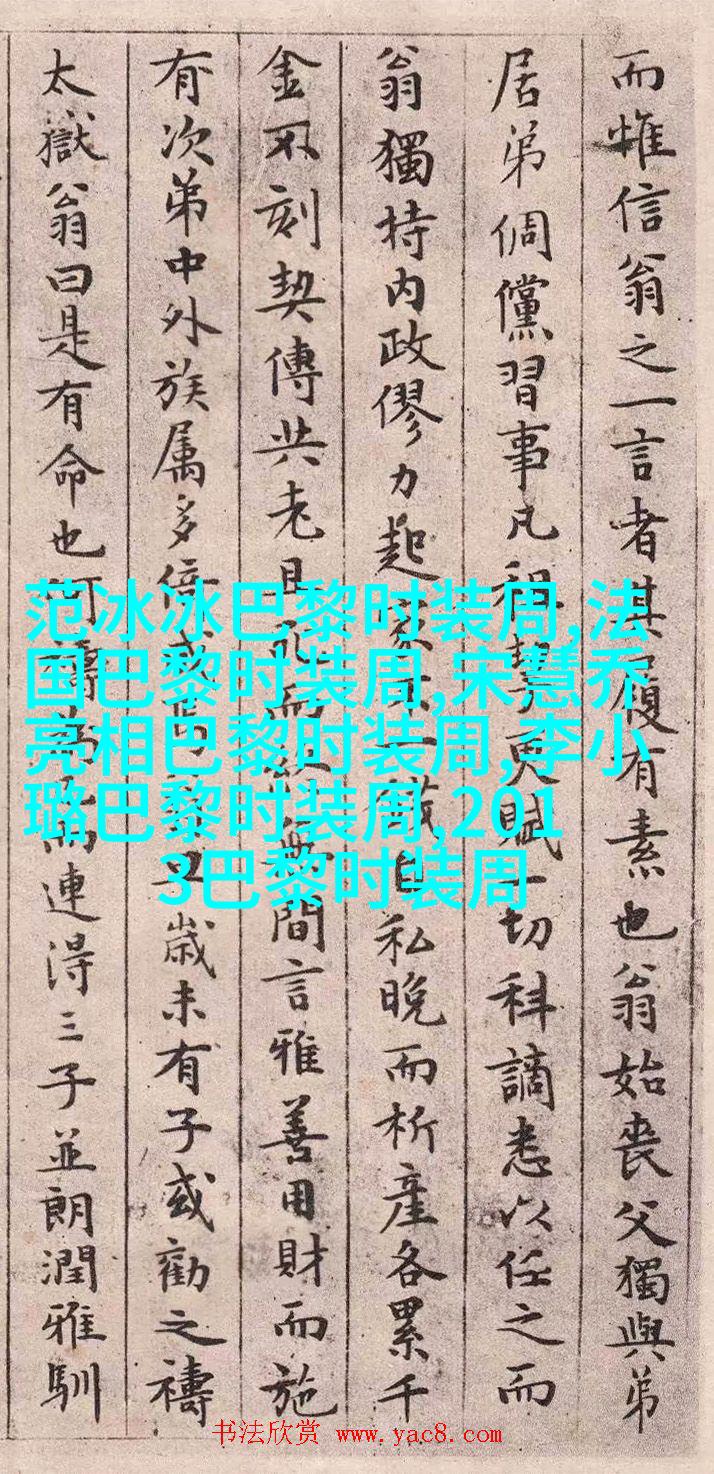 而惟信翁之一言者其履有素也翁始喪父獨與弟
居弟倜儻習事凡租契更賦一切科謫悉以任之而
翁獨持内政僇力起自私晚而析產各累千
金不刻契傳共老且死而無間言雅善用財而施
有次弟中外族属多倍歲未有子或勸之禱
太嶽翁曰是有命也何禱為而連得三子並朗潤雅馴
范冰冰巴黎时装周,法
国巴黎时装周,宋慧乔
亮相巴黎时装周,李小
璐巴黎时装周,201
3巴黎时装周
书法欣赏 www.yac8.com